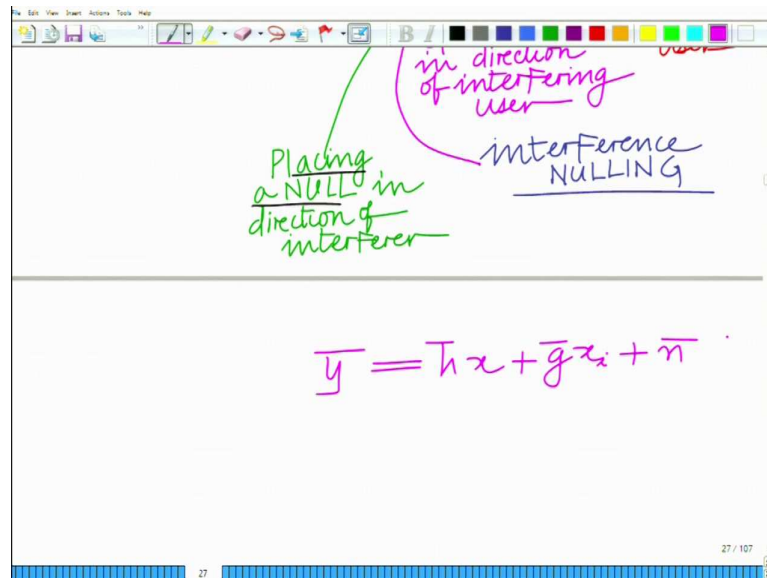 File Edit View Insert Actions Tools Help
in direction
of interfering
user
user
interference
NULLING
Placing
a NULL in
direction of
interferer
y̅ = h̅x + g̅xᵢ + n̅
27 / 107
27